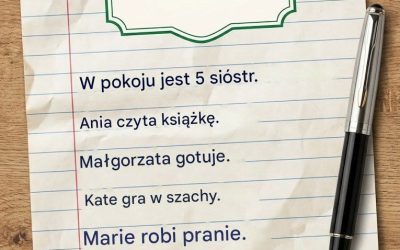 W pokoju jest 5 sióstr.
Ania czyta książkę.
Małgorzata gotuje.
Kate gra w szachy.
Marie robi pranie.